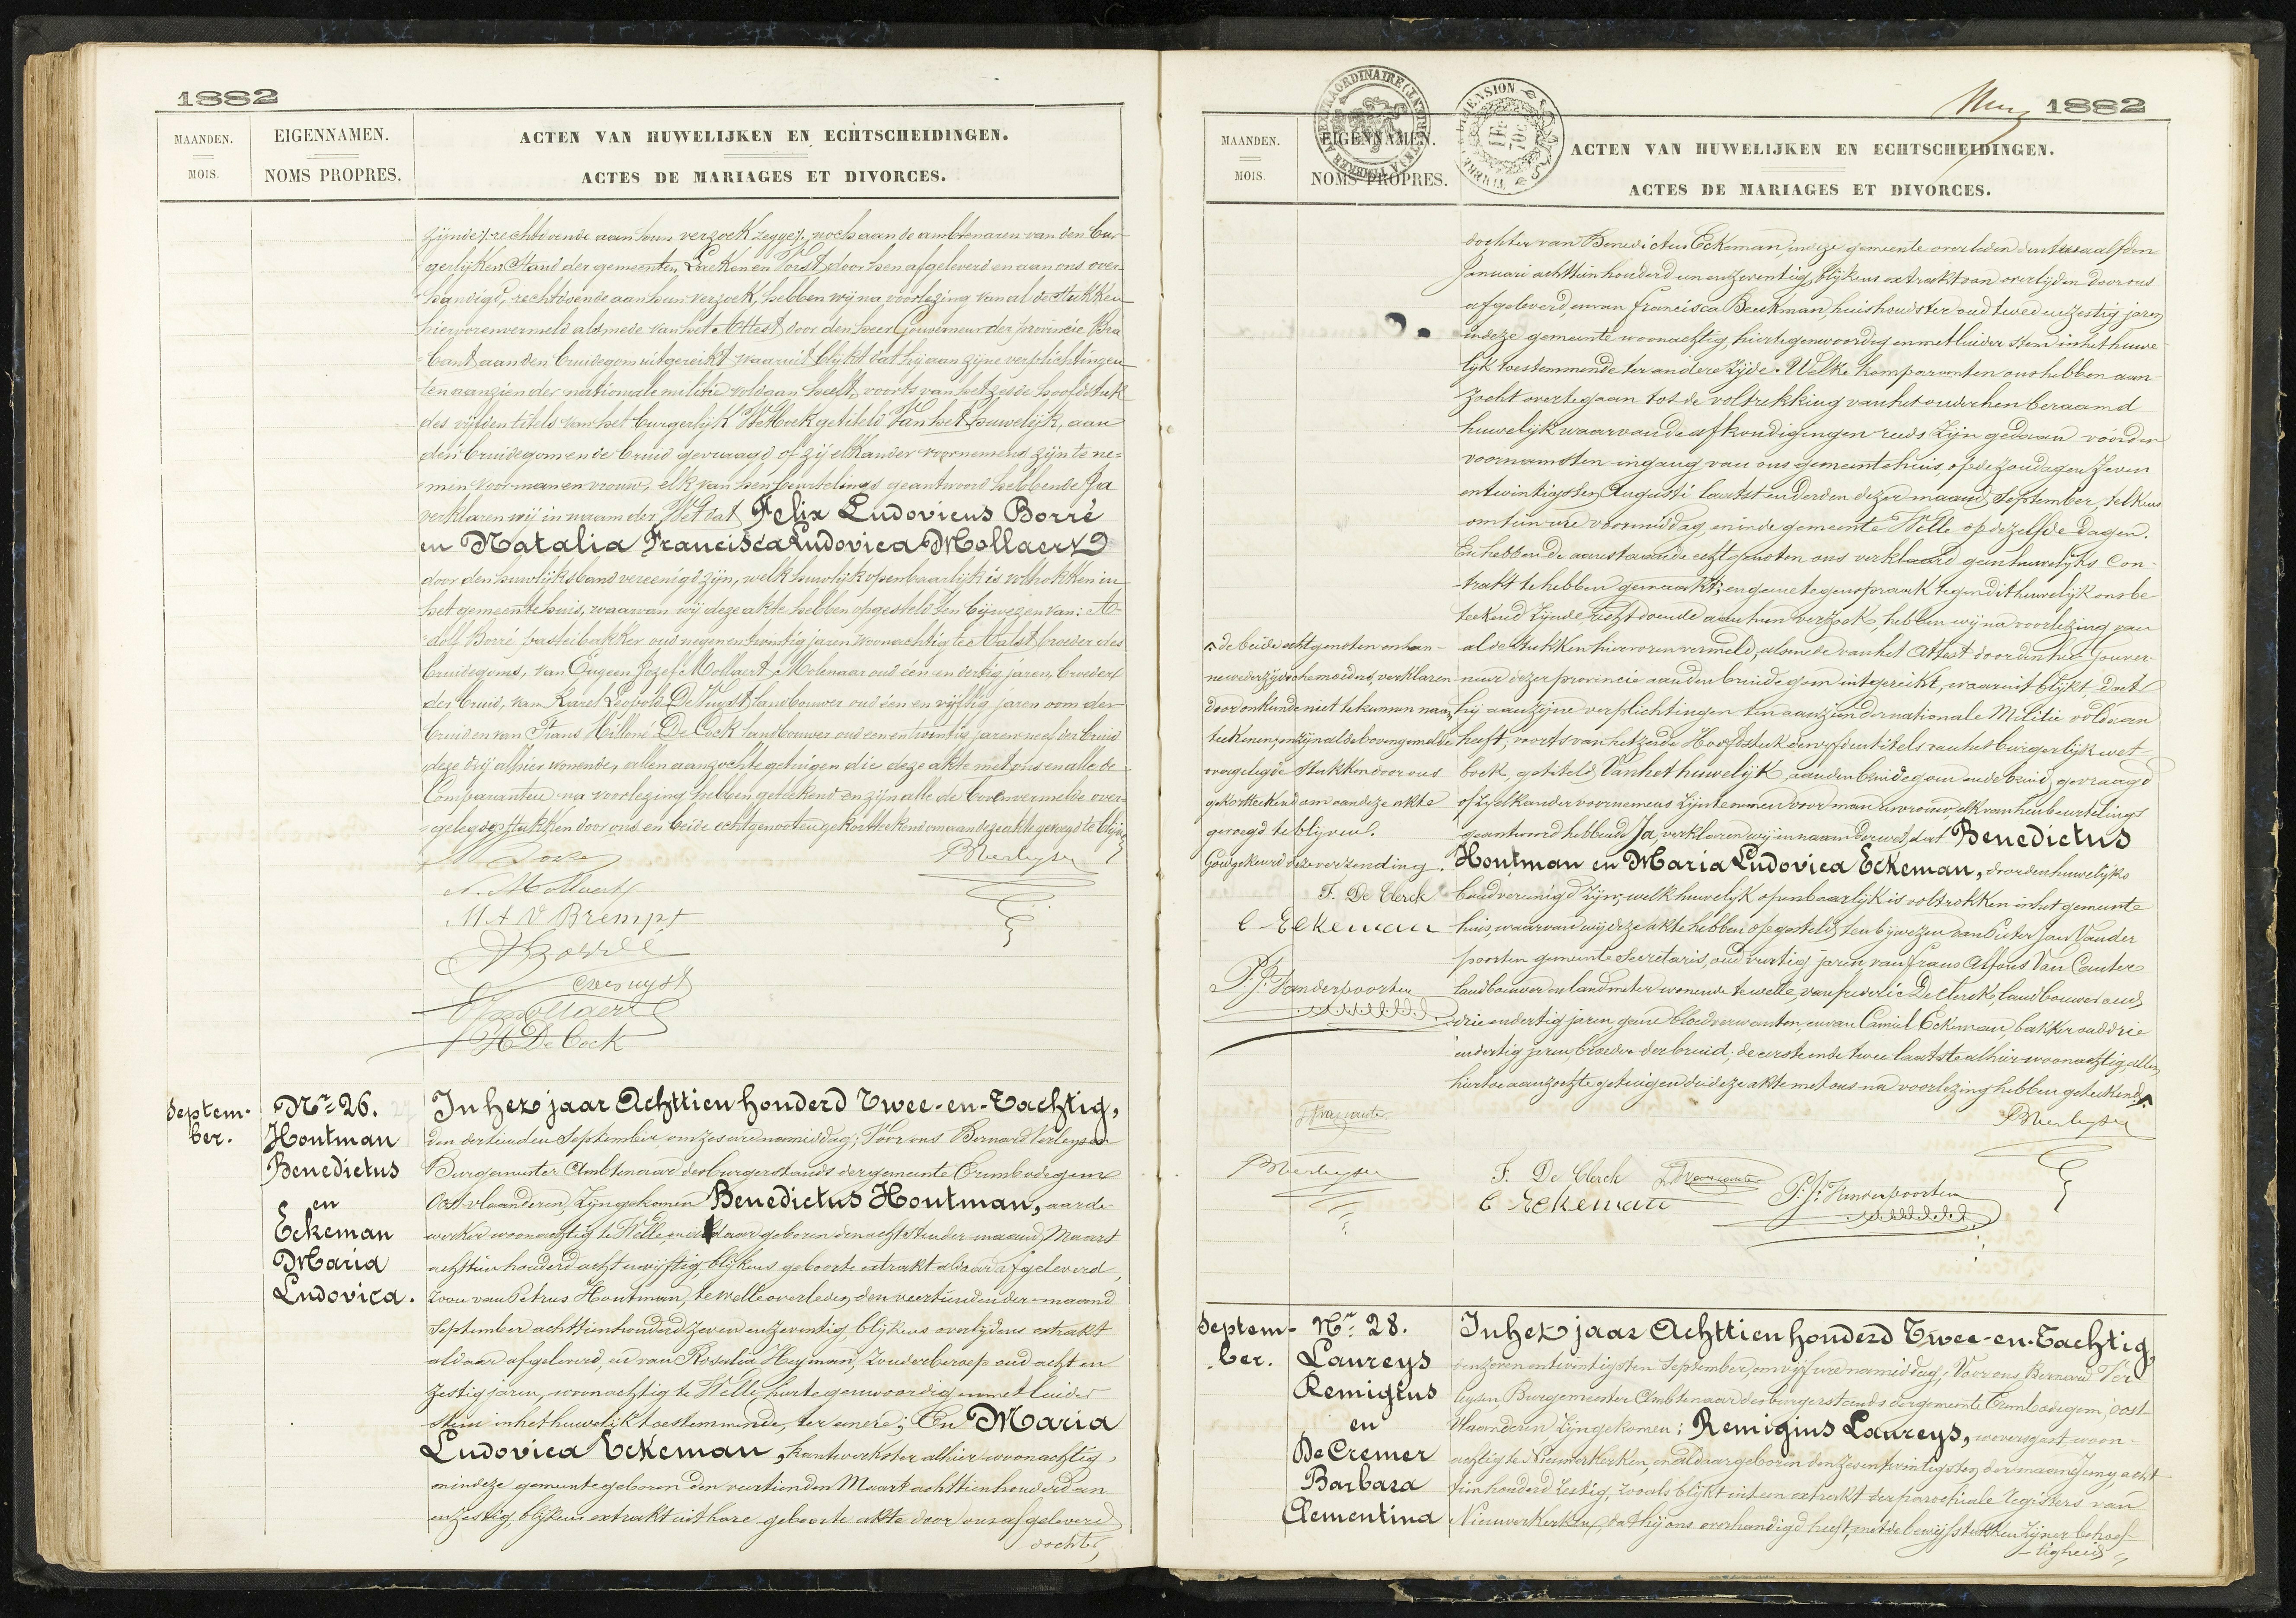 1882
MAANDEN.
MOIS.
EIGENNAMEN.
NOMS PROPRES.
ACTEN VAN HUWELIJKEN EN ECHTSCHEIDINGEN.
ACTES DE MARIAGES ET DIVORCES.
zijnde /:rechtdoende aan hun verzoek zegge:/, noch aan de ambtenaren van den bur-
gerlijken Stand der gemeenten Laeken en Vorst door hen afgeleverd en aan ons over-
handigd, rechtdoende aan hun verzoek, hebben wij na voorlezing van al de stukken
hiervorenvermeld alsmede van het Attest door den heer Gouverneur der provincie Bra-
bant aan den bruidegom uitgereikt waaruit blijkt dat hij aan zijne verplichtingen
ten aanzien der nationale militie voldaan heeft, voorts van het zesde hoofdstuk
des vijfden titels van het burgerlijk Wetboek getiteld Van het huwelijk, aan
den bruidegom en de bruid gevraagd of zij elkander voornemens zijn te ne-
men voor man en vrouw, elk van hen beurtelings geantwoord hebbende Ja
verklaren wij in naam der Wet dat Felix Ludovicus Borré
en Natalia Francisca Ludovica Mollaert
door den huwlijksband vereenigd zijn, welk huwlijk openbaarlijk is voltrokken in
het gemeentehuis, waarvan wij deze akte hebben opgesteld ten bijwezen van: A-
dolf Borré pasteibakker oud negen en twintig jaren woonachtig te Aalst broeder des
bruidegoms, van Eugeen Jozef Mollaert Molenaar oud één en dertig jaren, broeder
der bruid, van Karel Leopold De Nuyst landbouwer oud één en vijftig jaren oom der
bruid en van Frans Hilloné De Cock landbouwer oud een en twintig jaren neef der bruid
deze drij alhier wonende, allen aanzochte getuigen die deze akte met ons en alle de
Comparanten na voorlezing hebben geteekend en zijn alle de bovenvermelde over-
gelegde stukken door ons en beide echtgenooten gekortteekend om aan deze akte gevoegd te blijven
Borré
BVerleysen
N. Mollaert
M A V Brempt
A Borré
E J Mollaert
H De Cock
Septem-
ber.
Nr 26.
Houtman
Benedictus
en
Eekeman
Maria
Ludovica.
In het jaar Achttien honderd Twee-en-Tachtig,
den dertienden September om zes ure namiddag; Voor ons Bernard Verleysen
Burgemeester Ambtenaar des burgerstands der gemeente Erembodegem
Oost-vlaanderen, Zijn gekomen Benedictus Houtman, aarde-
werker woonachtig te Welle, en aldaar geboren den achtsten der maand Maart
achttien honderd acht en vijftig, blijkens geboorte extrakt aldaar afgeleverd,
Zoon van Petrus Houtman, te Welle overleden den veertienden der maand
September achttienhonderd zeven en zeventig, blijkens overlijdens extrakt
aldaar afgeleverd, en van Rosalia Heyman, Zonder beroep oud acht en
zestig jaren, woonachtig te Welle hiertegenwoordig en met luider
stem in het huwelijk toestemmende, ter eenere; En Maria
Ludovica Eekeman, kantwerkster alhier woonachtig,
en in deze gemeente geboren den veertienden Maart achttienhonderd een
en zestig, blijkens extrakt uit hare geboorte akte door ons afgeleverd
dochter,
1882
MAANDEN.
MOIS.
EIGENNAMEN.
NOMS PROPRES.
ACTEN VAN HUWELIJKEN EN ECHTSCHEIDINGEN.
ACTES DE MARIAGES ET DIVORCES.
dochter van Benedictus Eekeman, in deze gemeente overleden den twaalfden
Januari achttien honderd een en zeventig, blijkens extrakt van overlijden door ons
afgeleverd, en van Francisca Beekman, huishoudster oud twee en zestig jaren
in deze gemeente woonachtig, hiertegenwoordig en met luider stem in het huwe-
lijk toestemmende ter andere Zijde. Welke komparanten ons hebben aan-
zocht overtegaan tot de voltrekking van het onder hen beraamd
huwelijk waarvan de afkondigingen reeds Zijn gedaan vóór den
voornamsten ingang van ons gemeentehuis, op de zondagen Zeven
en twintigsten Augusti laatst en derden dezer maand September, telkens
om tien ure voormiddag, en in de gemeente Welle op dezelfde dagen.
En hebben de aanstaande echtgenoten ons verklaard geen huwelijks Con-
trakt te hebben gemaakt; en geene tegenspraak tegen dit huwelijk ons be-
teekend Zijnde rechtdoende aan hun verzoek, hebben wij na voorlezing van
al de stukken hiervoren vermeld, alsmede van het Attest door den heer Gouver-
neur dezer provincie aan den bruidegom uitgereikt, waaruit blijkt dat
hij aan zijne verplichtingen ten aanzien der nationale Militie voldaan
heeft; voorts van het zesde Hoofdstuk des vijfden titels van het burgerlijk wet-
boek, getiteld Van het huwelijk, aan den bruidegom en de bruid gevraagd
of zij elkander voornemens zijn te nemen voor man en vrouw, elk van hen beurtelings
geantwoord hebbende Ja, verklaren wij in naam der wet, dat Benedictus
Houtman en Maria Ludovica Eekeman, door den huwelijks
band vereenigd Zijn, welk huwelijk openbaarlijk is voltrokken in het gemeente
huis, waarvan wij deze akte hebben opgesteld, ten bijwezen van Pieter Jan Vander
poorten gemeente Secretaris, oud veertig jaren, van Frans Alfons Van Cauter
landbouwer en landmeter wonende te welle, van Frederic De Clerck, landbouwer oud
drie en dertig jaren, geene bloedverwanten, en van Camiel Eekeman bakker oud drie
en dertig jaren, broeder der bruid; de eerste en de twee laatste alhier woonachtig, allen
hiertoe aanzochte getuigen die deze akte met ons na voorlezing hebben geteekend.
de beide echtgenoten en hun-
ne wederzijdsche moeders, verklaren
door onkunde niet te kunnen naam-
teekenen, en zijn al de bovengemelde
overgelegde stukken door ons
gekortteekend om aan deze akte
gevoegd te blijven.
Goedgekeurd deze verzending.
F. De Clerck
C Eekeman
P. J. Vanderpoorten
BVerleysen
BVerleysen
F. De Clerck
C Eekeman
P. J. Vanderpoorten
Septem-
ber.
Nr 28.
Laureys
Remigius
en
De Cremer
Barbara
Clementina
In het jaar Achttien honderd Twee-en-Tachtig,
den zeven en twintigsten September, om vijf ure namiddag, Voor ons Bernard Ver
leysen Burgemeester Ambtenaar des burgerstands der gemeente Erembodegem, oost-
Vlaanderen Zijn gekomen: Remigius Laureys, weversgast, woon-
achtig te Nieuwerkerken, en aldaar geboren den zeven twintigsten der maand Juny acht-
tien honderd zestig, zooals blijkt uit een extrakt der parochiale registers van
Nieuwerkerken, dat hij ons overhandigd heeft, met de bewijsstukken Zijner behoef-
tigheid